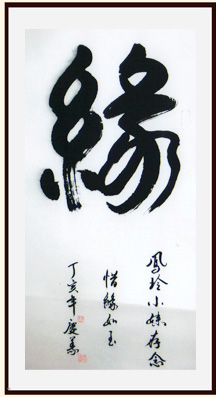 緣
鳳玲小妹存念
惜緣如玉
丁亥年慶義